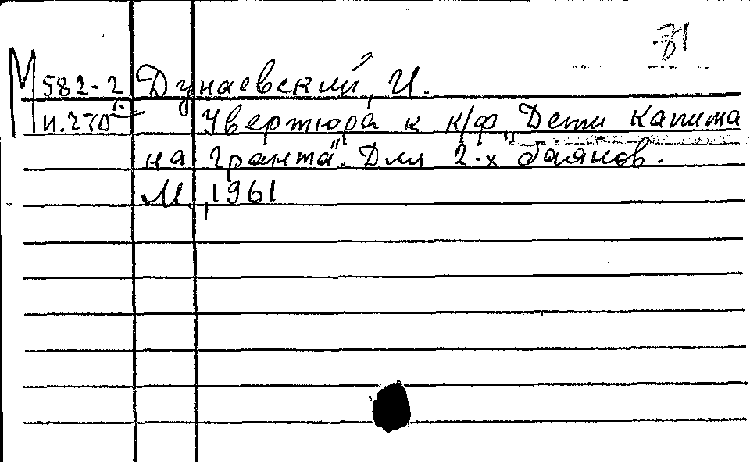 81
М 582-2 Дунаевский, И.
И.270 Увертюра к к/ф „Дети капита
на Гранта". Для 2-х баянов.
М, 1961